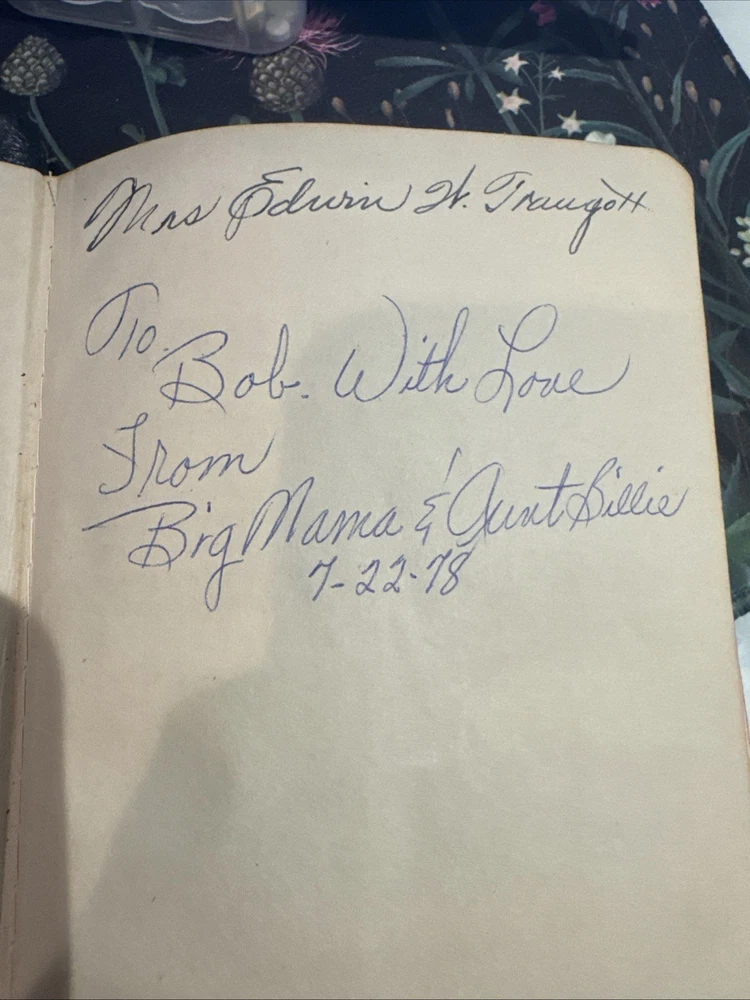 Mrs Edwin W. Traugott
To
Bob. With Love
From
Big Mama & Aunt Billie
7-22-78